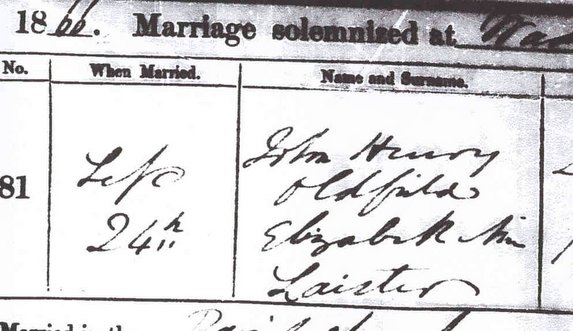 1866. Marriage solemnized at
No. When Married. Name and Surname.
81 Sep 24th John Henry
Oldfield
Elizabeth Ann
Laister
Married in the Parish